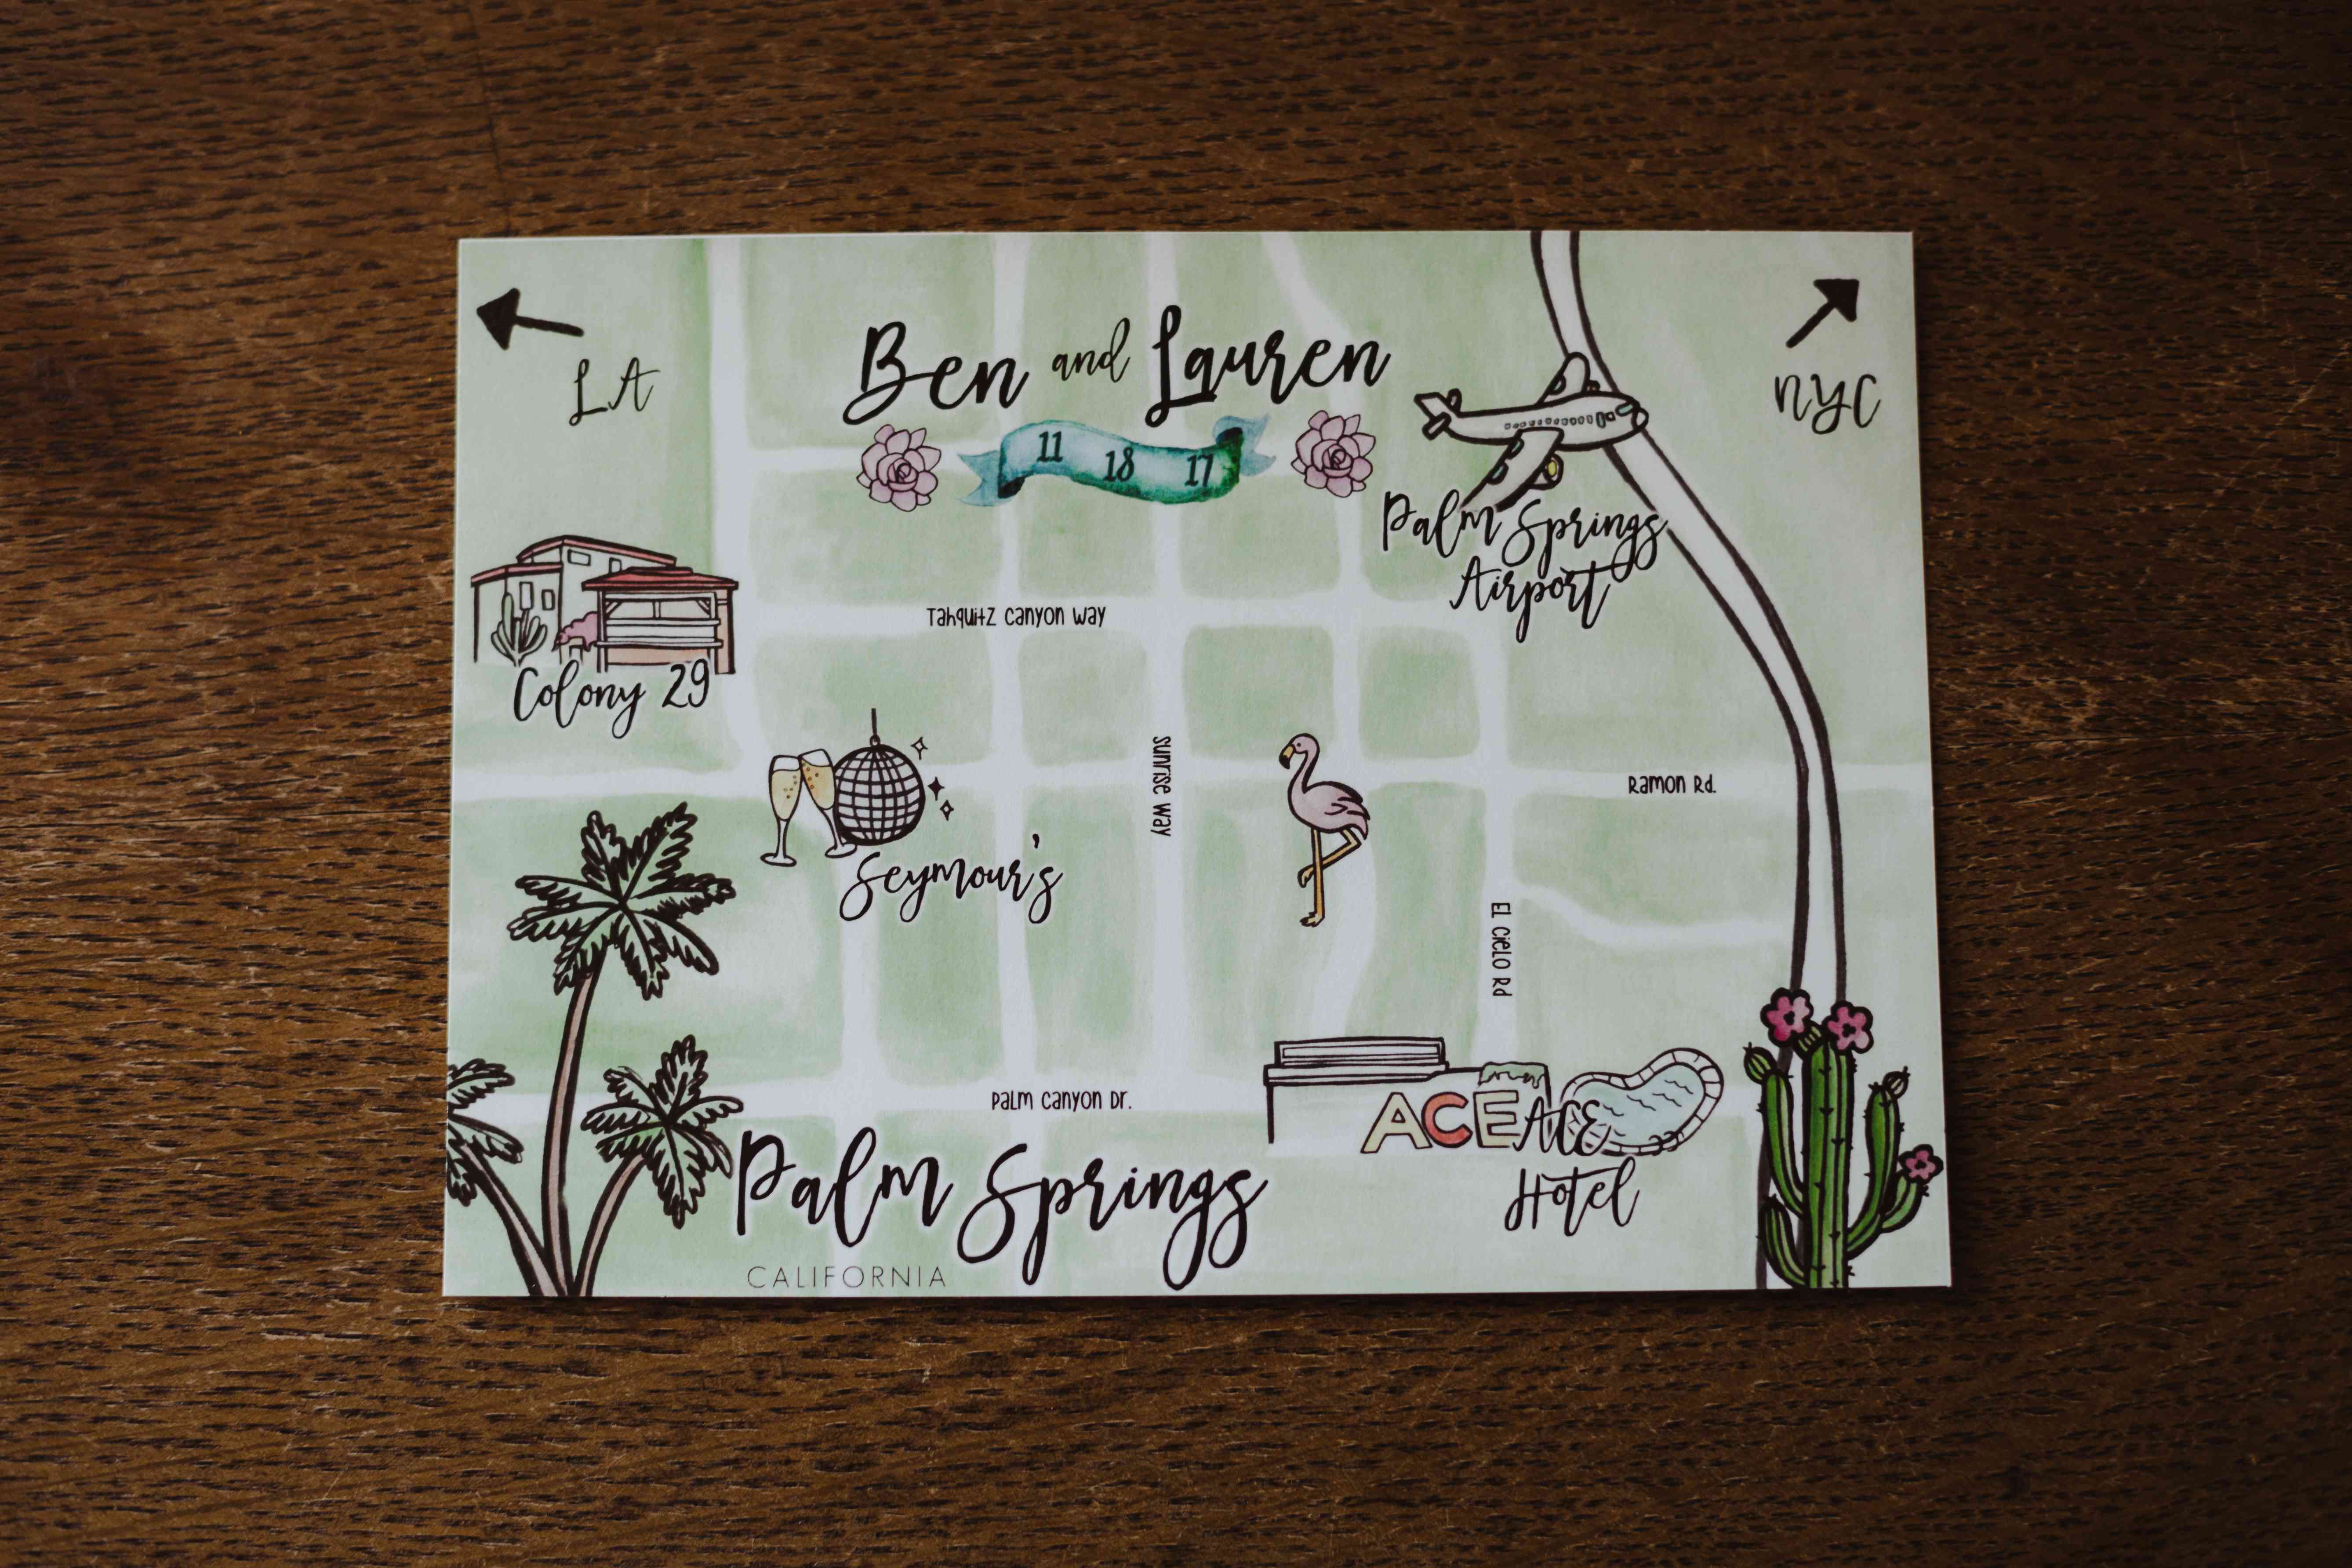 LA
NYC
Ben and Lauren
11 18 17
Palm Springs
Airport
Tahquitz Canyon Way
Colony 29
Sunrise Way
Ramon Rd.
Seymour's
El Cielo Rd
Palm Canyon Dr.
ACE
ACE
Hotel
Palm Springs
CALIFORNIA